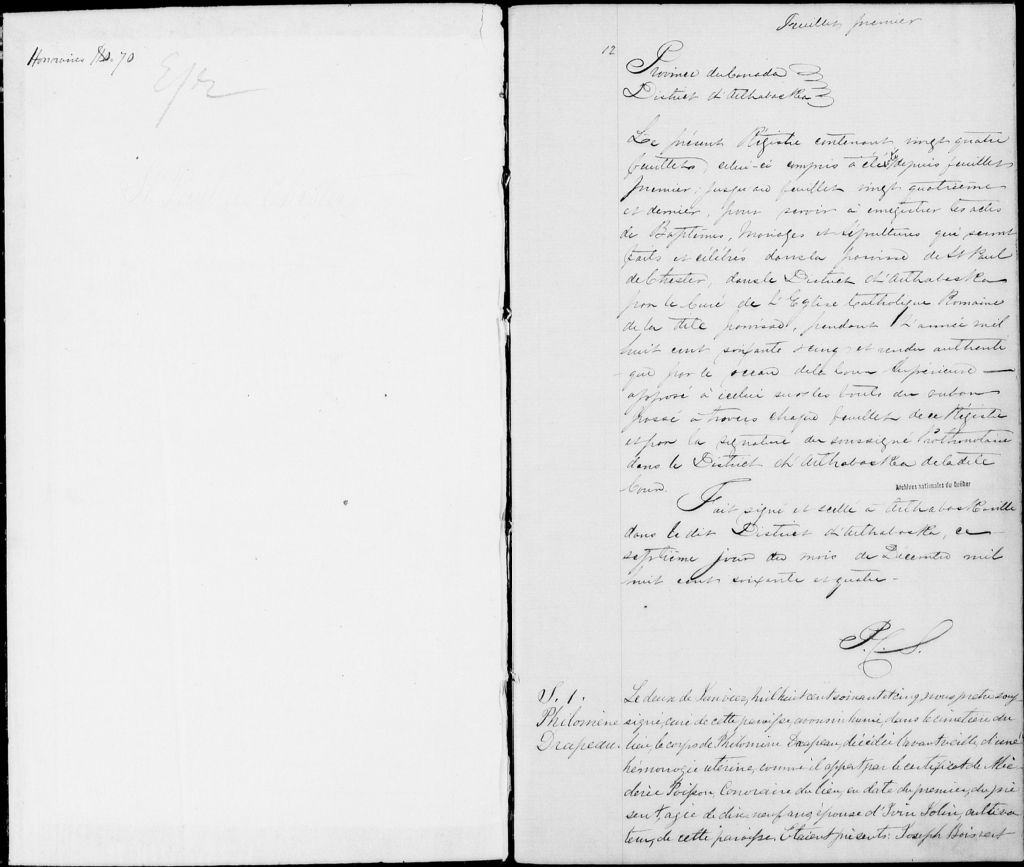 Honoraires $0.70
Feuillet premier
12
Province du Canada
District d'Arthabaska
Le présent Régistre contenant vingt quatre
feuillets, celui-ci compris à été depuis feuillet
premier, jusqu'au feuillet vingt quatrième
et dernier, pour servir à enregistrer les actes
de Baptêmes, Mariages et sépultures qui seront
faits et célébrés dans la paroisse de St Paul
de Chester, dans le District d'Arthabaska
par le Curé de l'Eglise Catholique Romaine
de la dite paroisse, pendant l'année mil
huit cent soixante & cinq et rendu authenti
que par le sceau de la Cour Supérieure —
apposé à icelui sur les bouts du ruban
passé à travers chaque feuillet de ce Régistre
et par la signature du soussigné Prothonotaire
dans le District d'Arthabaska de la dite
Cour.
Archives nationales du Québec
Fait signé et scellé à Arthabaskaville
dans le dit District d'Arthabaska, ce
septième jour du mois de Décembre mil
huit cent soixante et quatre -
P.C.S.
S. 1.
Philomène
Drapeau.
Le deux de Janvier, mil huit cent soixante et cinq, nous prêtre sous
signé, curé de cette paroisse, avons inhumé, dans le cimetière du
lieu, le corps de Philomène Drapeau, décédée l'avant veille, d'une
hémorragie utérine, comme il appert par le certificat de Mé
déric Poisson, Coronaire du lieu, en date du premier, du pré
sent, agée de dix neuf ans, épouse d' cultiva
teur, de cette paroisse. Etaient présents: Joseph Boisvert